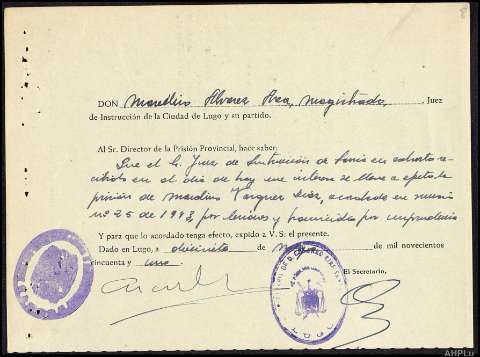 DON Marcelino Alvarez Arca, magistrado, Juez
de Instrucción de la Ciudad de Lugo y su partido.
Al Sr. Director de la Prisión Provincial, hace saber:
Que el Sr. Juez de Instrucción de Sarria en exhorto re-
cibido en el día de hoy me interesa se lleve a efecto la
prisión de Marcelino Vázquez Díaz, acordada en sumario
nº 25 de 1948, por lesiones y homicidio por imprudencia
Y para que lo acordado tenga efecto, expido a V. S. el presente.
Dado en Lugo, a de de mil novecientos
cincuenta y uno.
El Secretario,
LUGO
AHPLu